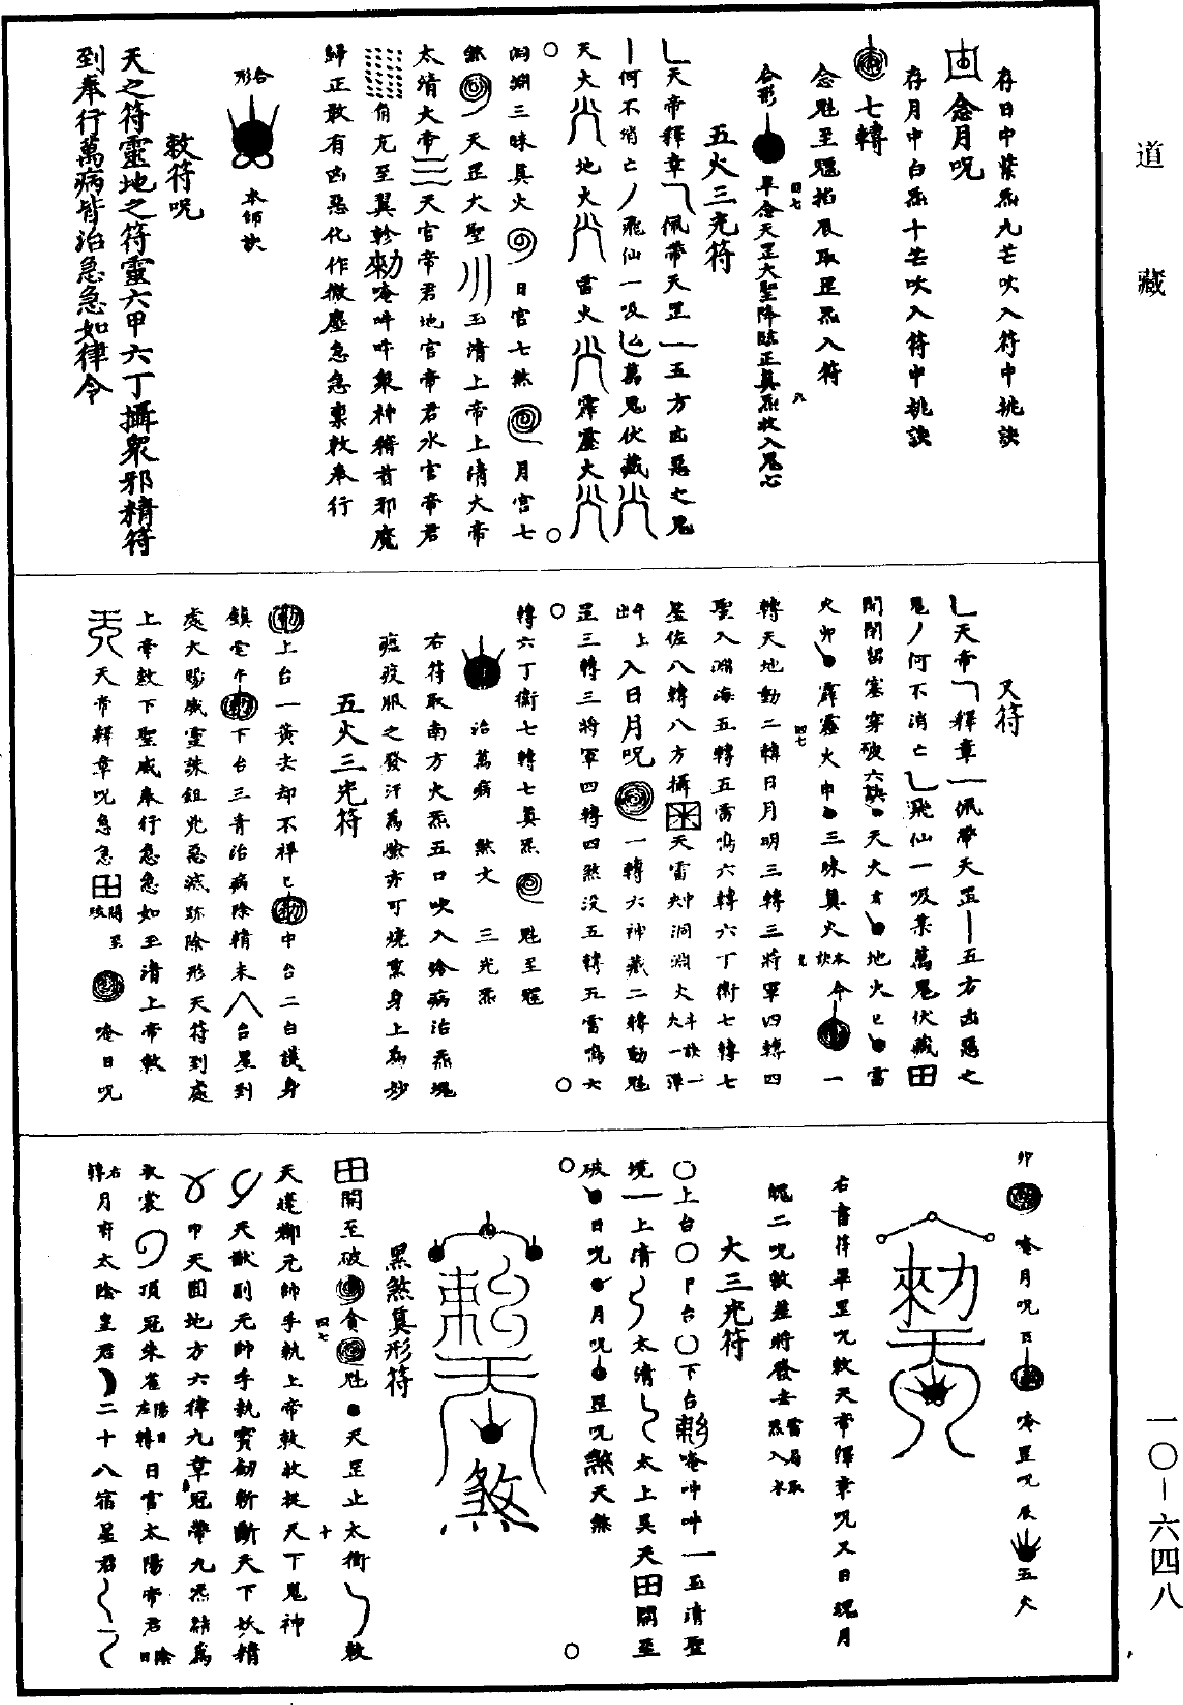 道藏
存日中紫炁九芒吹入符中挑訣
念月呪
存月中白炁十芒吹入符中挑訣
七轉
念魁至魒掐辰取罡炁入符
合形 畢念天罡大聖降臨正真炁收入鬼心
五火三光符
天帝釋章佩帶天罡五方凶惡之鬼
何不消亡飛仙一吸萬鬼伏藏
天火地火雷火霹靂火
洞淵三昧真火日宮七煞月宮七
煞天罡大聖玉清上帝上清大帝
太清大帝天官帝君地官帝君水官帝君
角亢至翼軫勑唵吽吽眾神稽首邪魔
歸正敢有凶惡化作微塵急急稟敕奉行
合形 本師訣
敕符呪
天之符靈地之符靈六甲六丁攝眾邪精符
到奉行萬病皆治急急如律令
又符
天帝釋章佩帶天罡五方凶惡之
鬼何不消亡飛仙一吸萬鬼伏藏
開閉留塞穿破六訣天火地火巳雷
火卯霹靂火申三昧真火一
轉天地動二轉日月明三轉三將軍四轉四
聖入淵海五轉五雷鳴六轉六丁衛七轉七
星佐八轉八方攝天雷洞淵火
上入日月呪一轉六神藏二轉動魁
罡三轉三將軍四轉四煞没五轉五雷鳴六
轉六丁衛七轉七真炁魁至魒
治萬病 煞文 三光炁
右符取南方火炁五口吹入治病治炁塊
瘟疫服之發汗為驗亦可燒熏身上為妙
五火三光符
上台一黃去却不祥巳中台二白護身
鎮宅午下台三青治病除精未台星到
處大賜威靈誅鉏兇惡滅跡除形天符到處
上帝敕下聖威奉行急急如玉清上帝敕
天帝釋章呪急急開至破唵日呪
卯唵月呪唵罡呪辰五火
右書符畢罡呪敕天帝釋章呪又日魂月
魄二呪敕
大三光符
上台中台下台勑唵吽吽玉清聖
境上清太清太上昊天開至
破日呪月呪罡呪煞天煞
黑煞真形符
開至破貪魁天罡止太衝敕
天蓬都元帥手執上帝敕收捉天丁鬼神
天猷副元帥手執寶劒斬斷天下妖精
甲天圓地方六律九章冠帶九炁結為
衣裳頂冠朱雀左轉日宮太陽帝君
右轉月府太陰皇君二十八宿星君
一〇—六四八